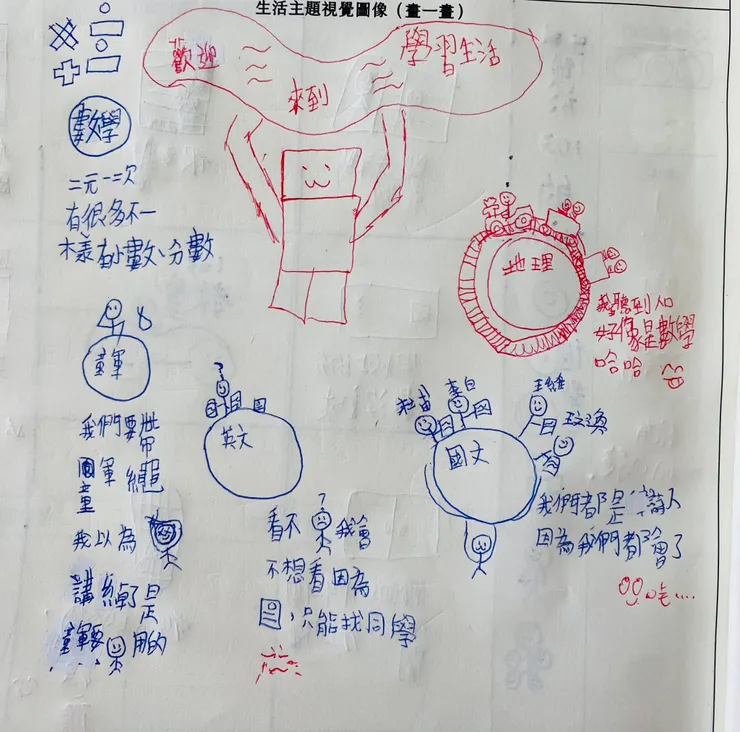 生活主題視覺圖像（畫一畫）
歡迎
來到
學習生活
數學
二元一二次
有很多不一
樣有小數、分數
地理
我聽到人口
好像是數學
哈哈
童軍
我們要帶
童軍繩
我以為
講繩子是
童軍要用的
?
英文
看不
?
我會
不想看因為
，只能找同學
李白
王維
國文
我們都是詩人
因為我們都會了